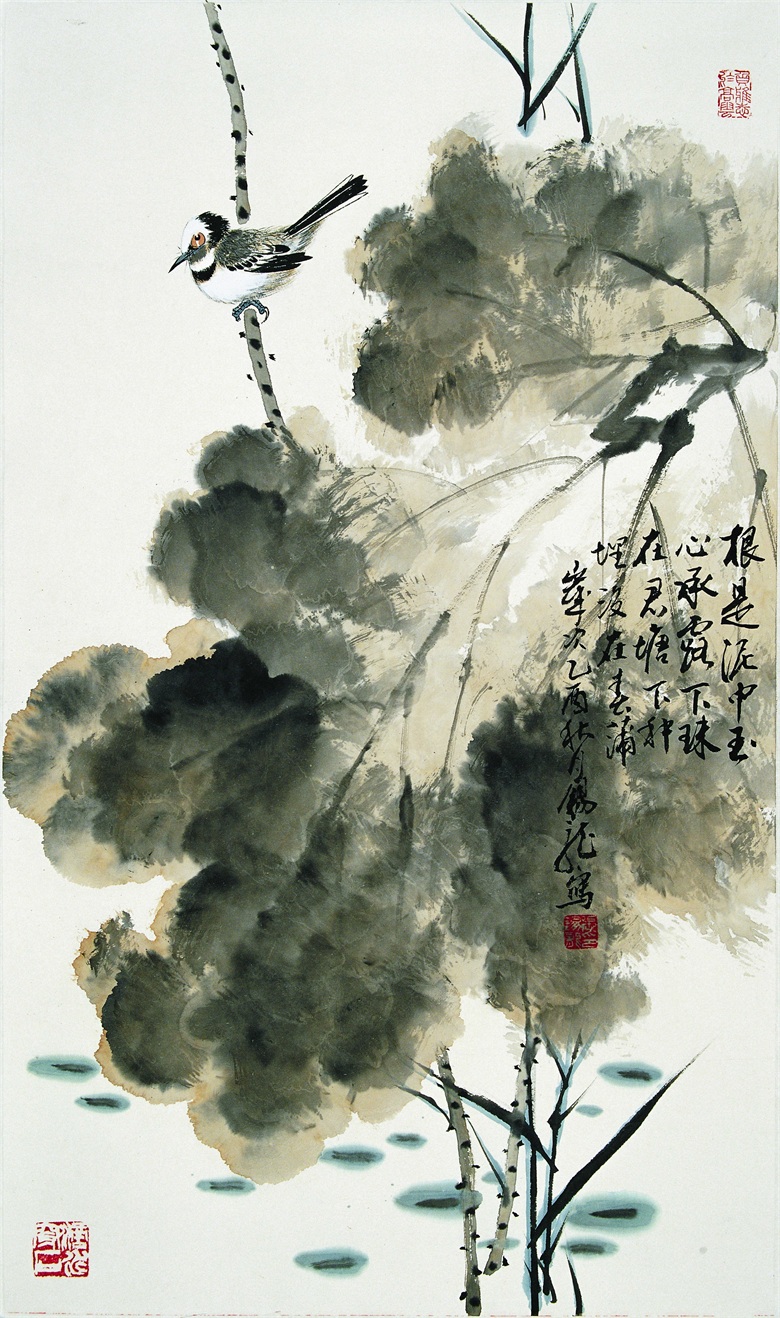 根是泥中玉
心承露下珠
在君塘下种
埋没在春蒲
嵗次乙酉秋月錫龙寫